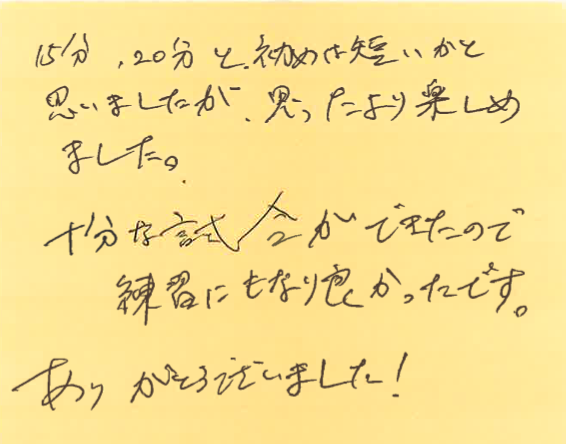 15分、20分と、初めは短いかと
思いましたが、思ったより楽しめ
ました。
十分な試合ができたので
練習にもなり良かったです。
ありがとうございました!